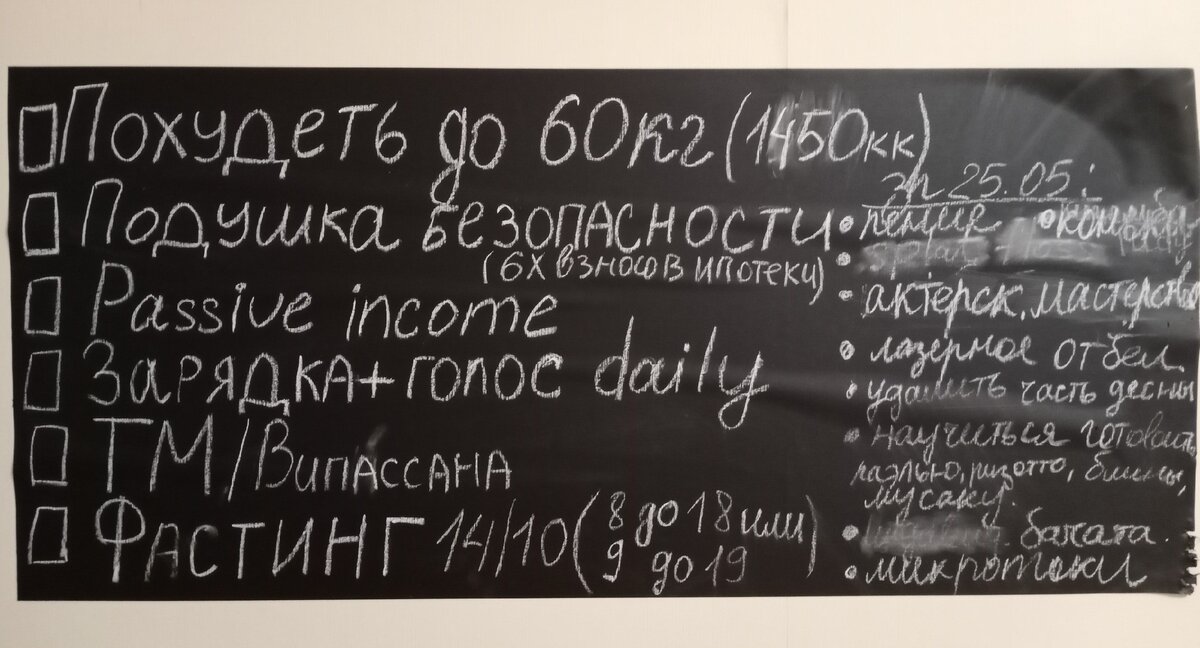 Похудеть до 60кг (1450кк)
Подушка безопасности
(6х взносов ипотеки)
Passive income
Зарядка + голос daily
ТМ/Випассана
Фастинг 14/10 (8 до 18 или
9 до 19)
за 25.05:
• пение •
•
• актерск. мастерство
• лазерное отбел.
• удалить часть десны
• научиться готовить
паэлью, ризотто, блины,
мусаку.
• бачата.
• микротоки